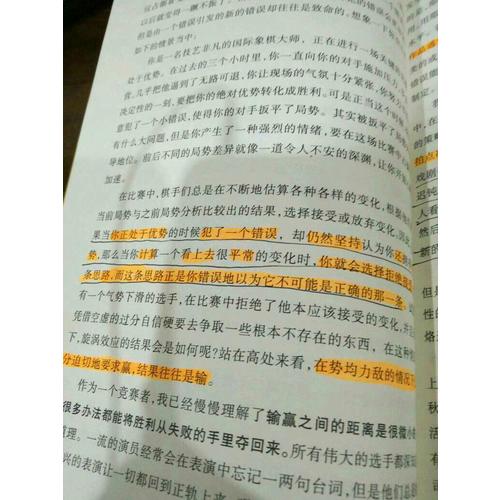 以后就变得一蹶不振了。
但是由一个错误引发的新的错误却往往是致命的。想象一下
如下的情景当中：
你是一名技艺非凡的国际象棋大师，正在进行一场关键
处于优势。在过去的三个小时里，你一直向你的对手施加压力，
竟，几乎把他逼到了无路可退，你让现场的气氛十分紧张，你努力
决定性的一刻，要把你的绝对优势转化成胜利。可是正当这个时候
意犯了一个小错误，使得你的对手扳平了局势。其实被扳平了
有什么大问题，但是你产生了一种强烈的情绪，要在这场比赛中
导地位。前后不同的局势差异就像一道令人不安的深渊，让你
加速。
在比赛中，棋手们总是在不断地估算各种各样的变化，根据
当前局势与之前局势分析比较出的结果，选择接受或放弃变化。因此
果当你正处于优势的时候犯了一个错误，却仍然坚持认为你还
势，那么当你计算一个看上去很平常的变化时，你就会选择拒绝
条思路，而这条思路正是你错误地以为它不可能是正确的那一条。
有一个气势下滑的选手，在比赛中拒绝了他本应该接受的变化，并且
凭借空虚的过分自信硬要去争取一些根本不存在的东西，在这种情
下，旋涡效应的结果会是如何呢？站在高处来看，在势均力敌的情况下
分迫切地要求赢，结果往往是输。
作为一个竞赛者，我已经慢慢理解了输赢之间的距离是很微小的
很多办法都能将胜利从失败的手里夺回来。所有伟大的选手都深
道理。一流的演员经常会在表演中忘记一两句台词，但是
兴的表演让一切都回到正轨上来。